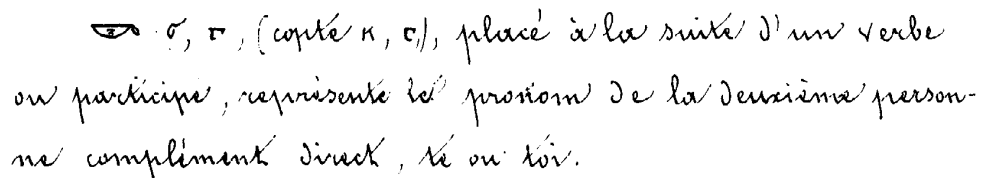 𓎡 ϭ, , (copte ⲕ, ), placé à la suite d'un verbe
ou participe, représente le pronom de la deuxième person-
ne complément direct, te ou toi.